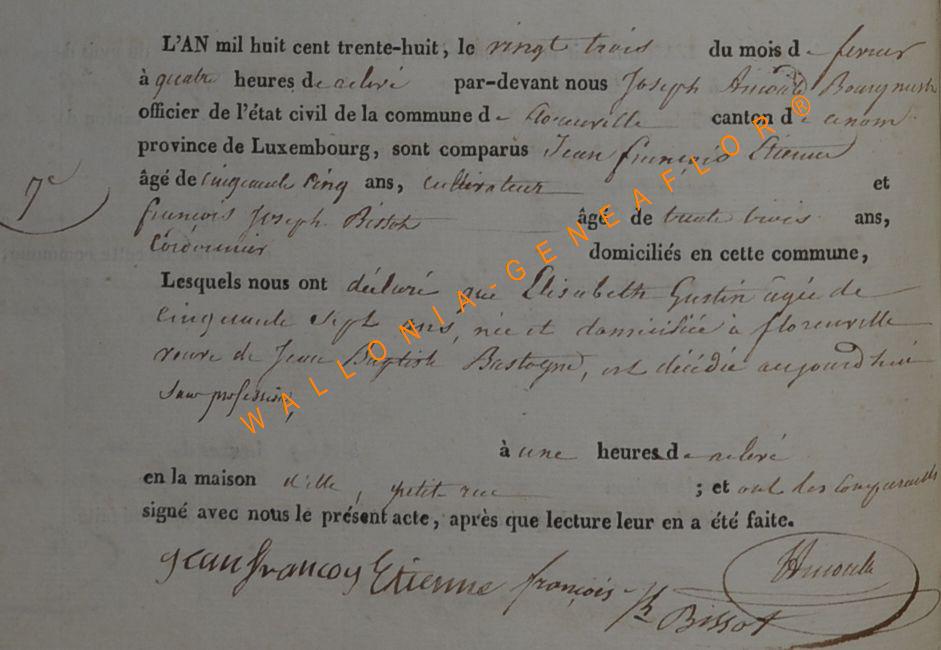 L'AN mil huit cent trente-huit, le vingt trois du mois de fevrier
à quatre heures de relevé par-devant nous Joseph Arnould Bourgmestre
officier de l'état civil de la commune de florenville canton de
province de Luxembourg, sont comparus Jean françois Etienne
âgé de cinquante cinq ans, cultivateur et
7e
françois Joseph Bissot âgé de trente trois ans,
Cordonnier domiciliés en cette commune,
Lesquels nous ont déclaré que Elisabeth Gustin agée de
cinquante sept ans, née et domiciliée à florenville
veuve de Jean Baptiste Bastogne, est décédée aujourd'hui
sans profession,
à une heures de relevé
en la maison d'elle, petite rue ; et ont les comparants
signé avec nous le présent acte, après que lecture leur en a été faite.
Jean françoy Etienne françois Bissot
WALLONIA-GENEAFLOR®